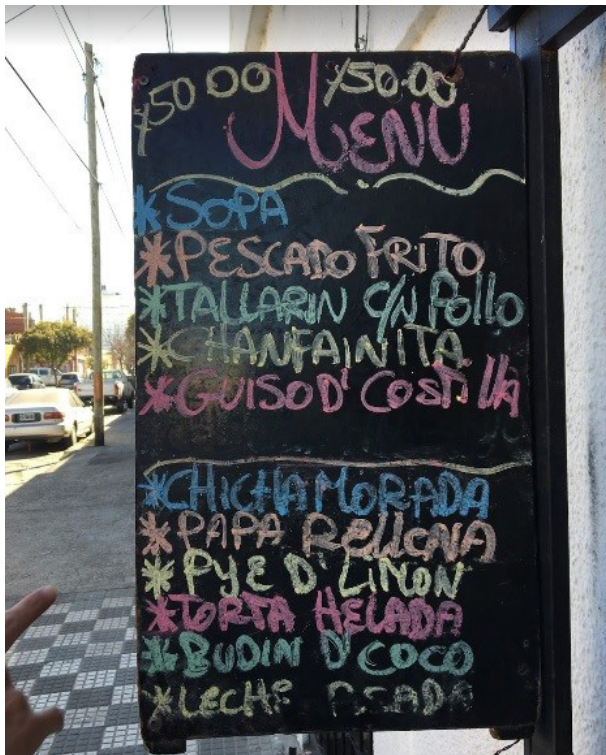 150.00 150.00
MENU
*SOPA
*PESCADO FRITO
*TALLARIN C/N Pollo
*CHANFAINITA
*GUISO D' COSTILLA
*CHICHA MORADA
*PAPA RELLENA
*PYE D' LIMON
*TORTA HELADA
*BUDIN D' COCO
*LECHE ASADA